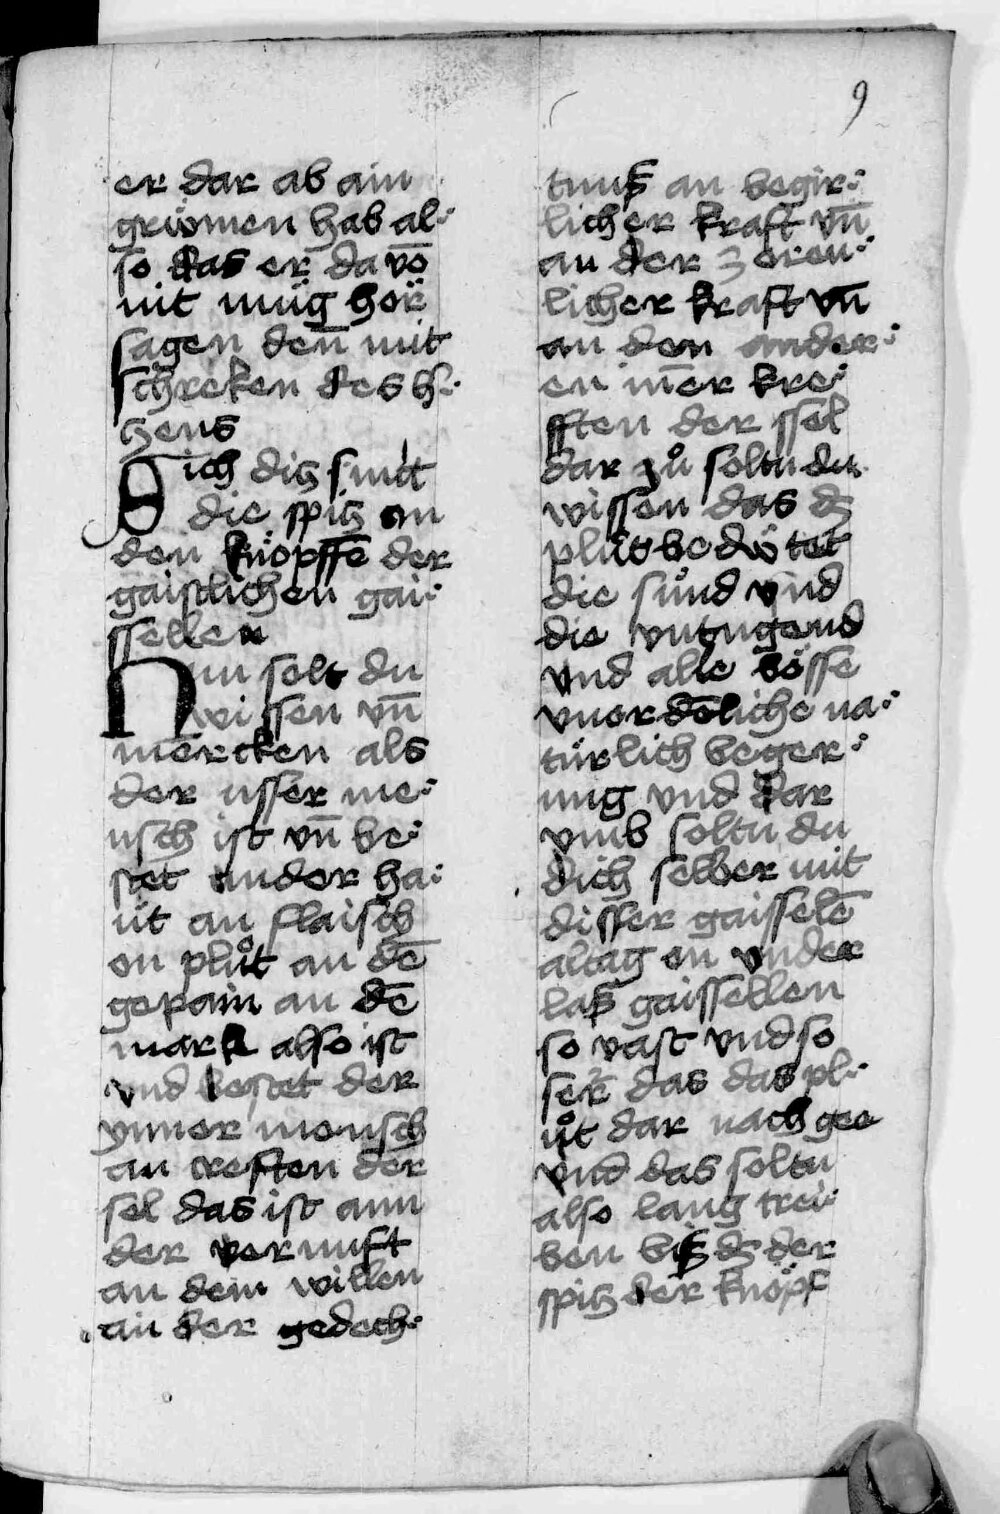 9
er dar ab ain
griͤwmen hab al¬
so das er da vō
nit müg hör
sagen deñ mit
schreken des h¬
tzens
Sich ditz sint
die spitz an
den knöpffē der
gaistlichen gai¬
ssellen
Nun solt du
wissen vn̄
mercken als
der usser me¬
nsch ist vn̄ be¬
stet an der ha¬
üt an flaisch
on plůt an dē
gepain an dē
mark also ist
vnd bestet der
ynner mensch
an creften der
sel das ist ann
der vernuft
an dem willen
an der gedech¬
tnuß an begir¬
licher kraft vn̄
an der zoren¬
licher kraft vn̄
an den ander¬
en iñer kre¬
fften der ssel
dar zů soltu du
wissen das dz
plůt bedwͤtet
die sůnd vnd
die vntugend
vnd alle bösse
vnordēliche na¬
türlich beger¬
ung vnd dar
vmb soltu du
dich selber mit
disser gaisselē
altag on vnder
laß gaissellen
so vast vnd so
ser das das pl¬
ůt dar nach gee
vnd das soltu
also lang trei¬
ben biß dz der
spitz der knöpf